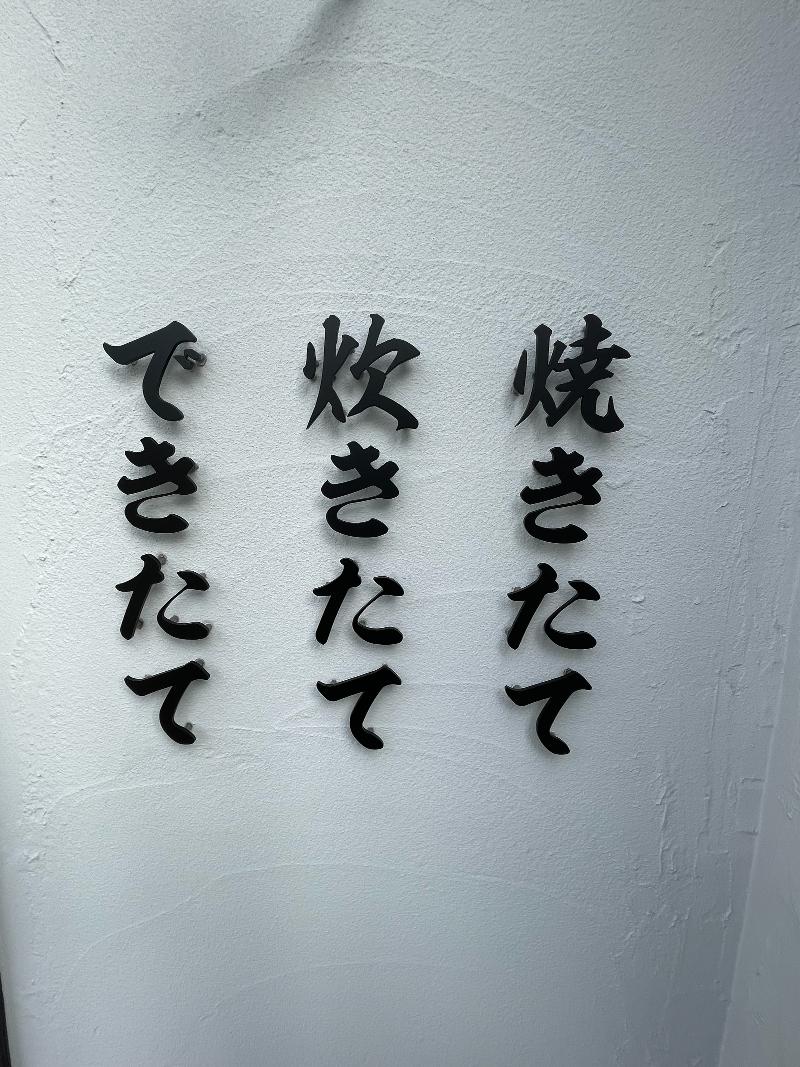 焼きたて
炊きたて
できたて